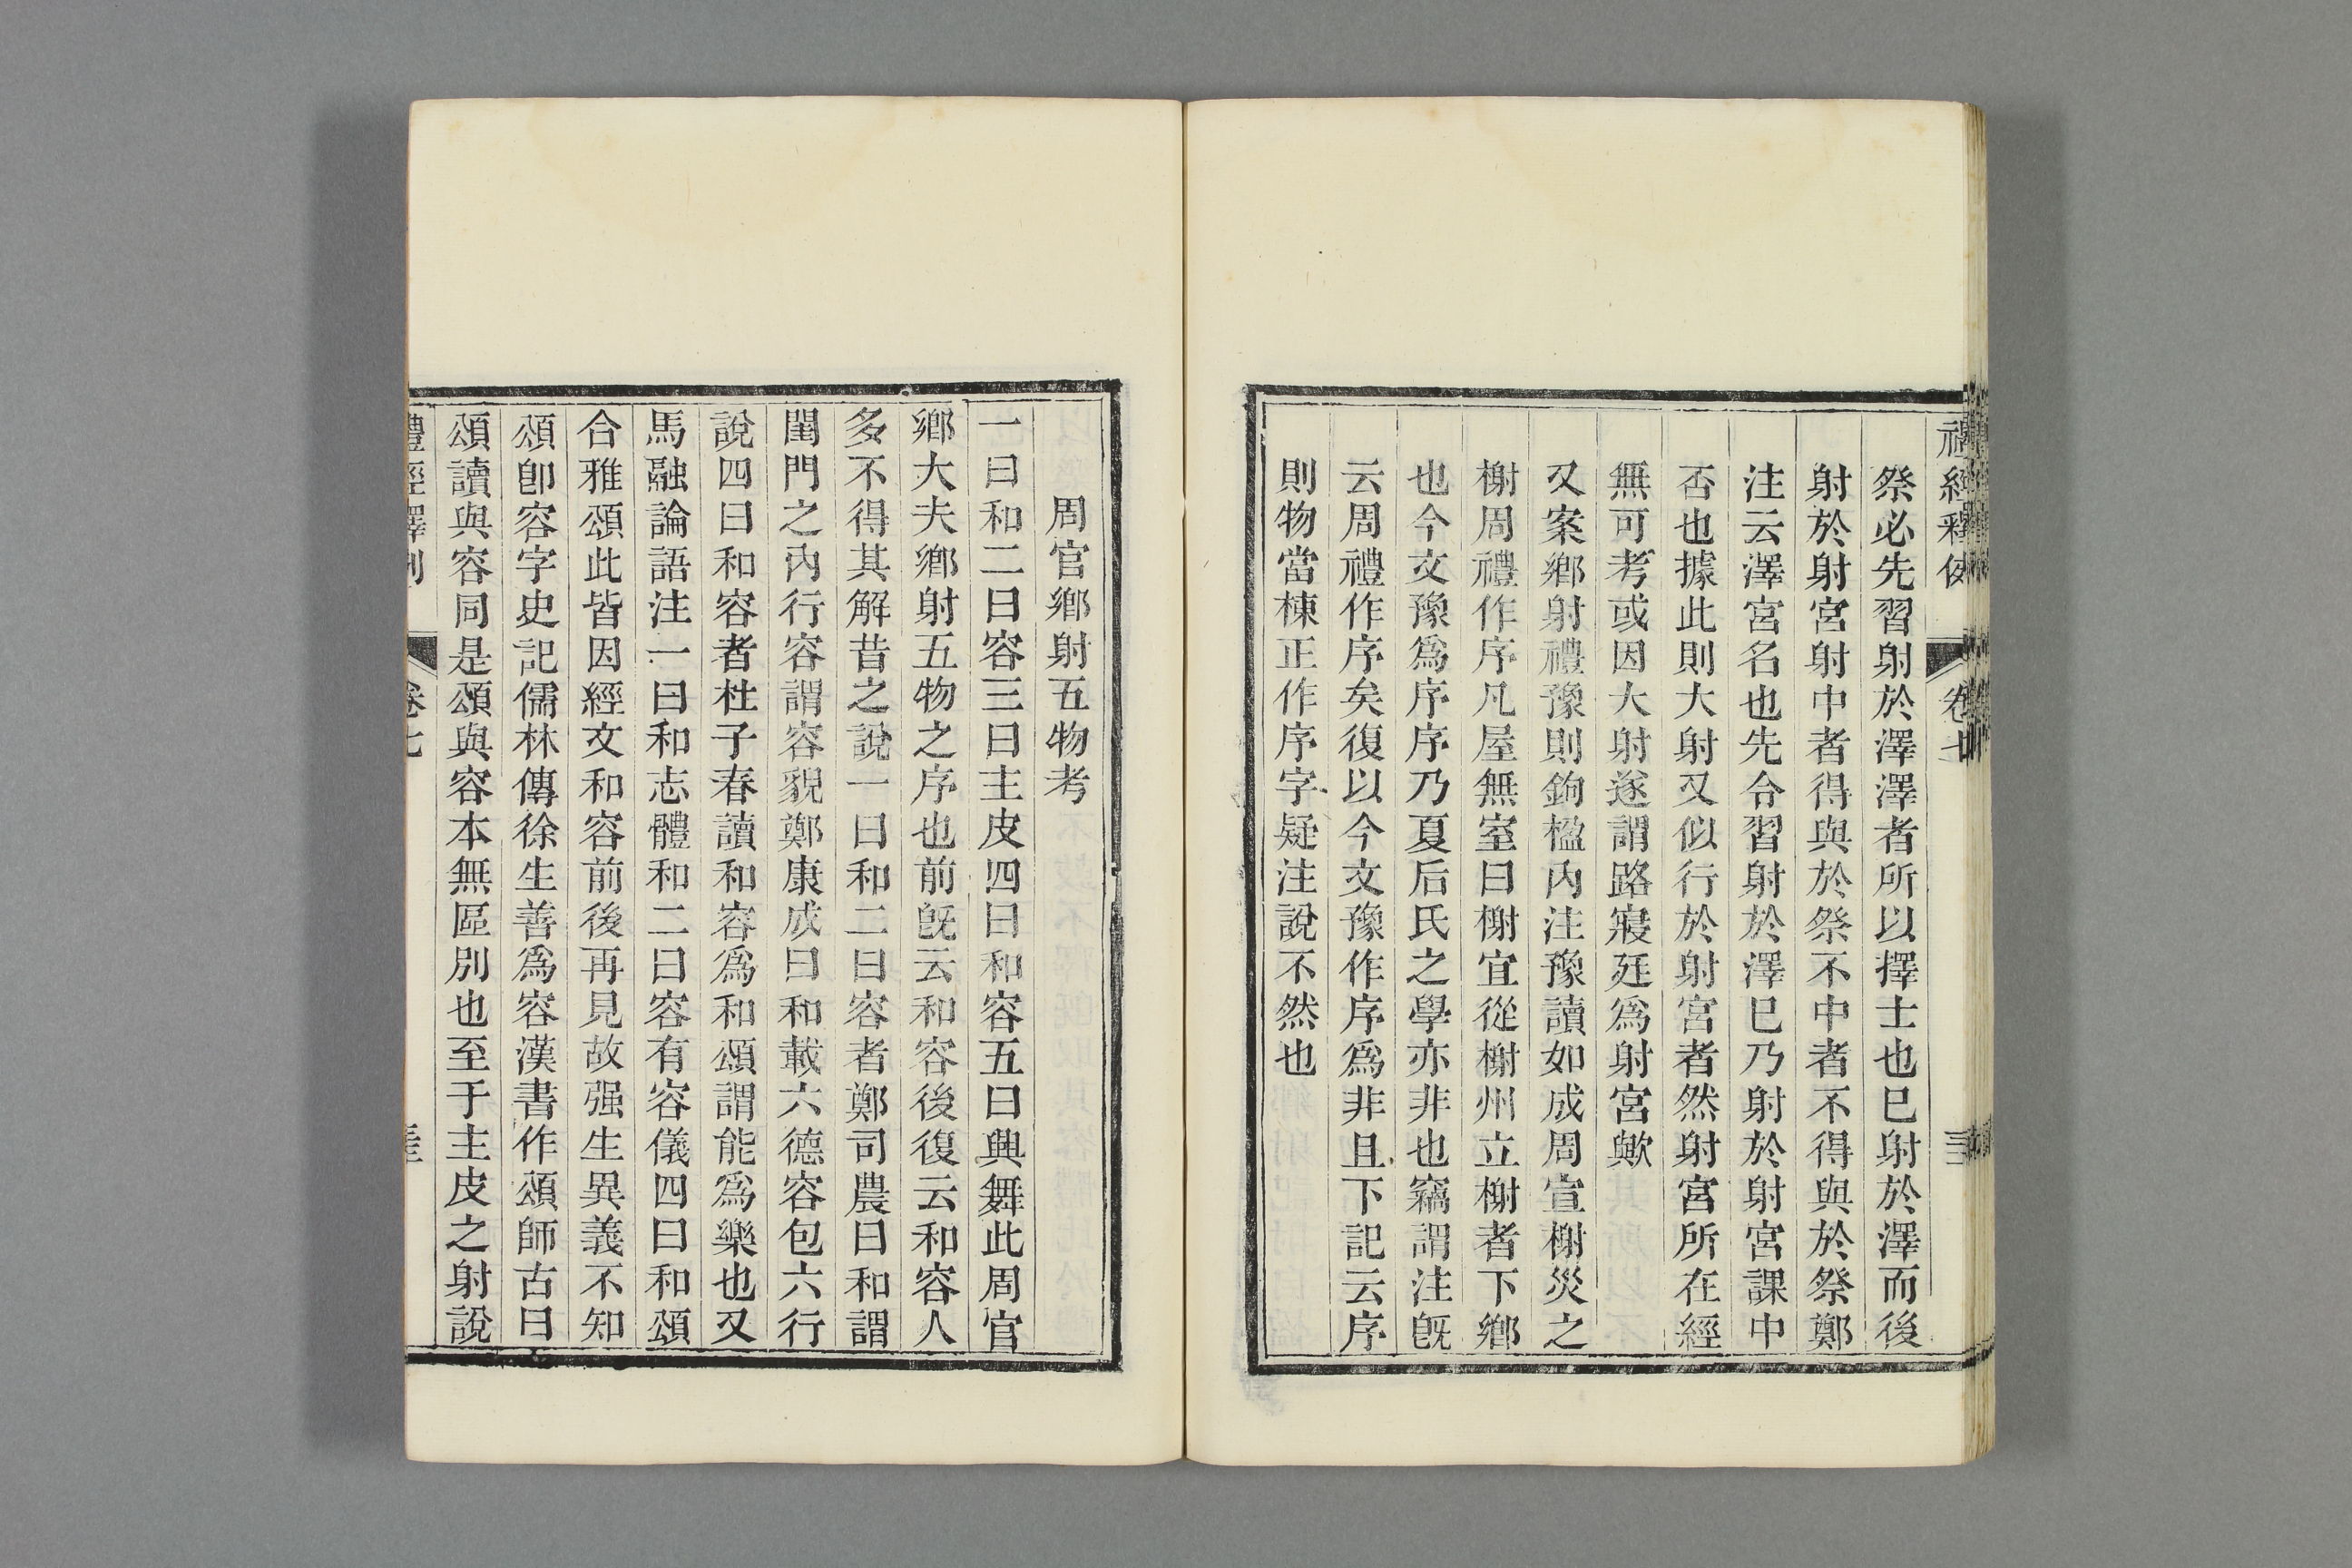 禮經釋例 卷七
祭必先習射於澤澤者所以擇士也巳射於澤而後
射於射宮射中者得與於祭不中者不得與於祭鄭
注云澤宮名也先合習射於澤巳乃射於射宮課中
否也據此則大射又似行於射宮者然射宮所在經
無可考或因大射遂謂路寢廷爲射宮歟
又案鄉射禮豫則鉤楹內注豫讀如成周宣榭災之
榭周禮作序凡屋無室曰榭宜從榭州立榭者下鄉
也今文豫爲序序乃夏后氏之學亦非也竊謂注旣
云周禮作序矣復以今文豫作序爲非且下記云序
則物當棟正作序字疑注說不然也
周官鄉射五物考
一曰和二曰容三曰主皮四曰和容五曰興舞此周官
鄉大夫鄉射五物之序也前旣云和容後復云和容人
多不得其解昔之說一曰和二曰容者鄭司農曰和謂
閨門之內行容謂容貌鄭康成曰和載六德容包六行
說四曰和容者杜子春讀和容爲和頌謂能爲樂也又
馬融論語注一曰和志體和二曰容有容儀四曰和頌
合雅頌此皆因經文和容前後再見故强生異義不知
頌卽容字史記儒林傳徐生善爲容漢書作頌師古曰
頌讀與容同是頌與容本無區別也至于主皮之射說
禮經釋例 卷七